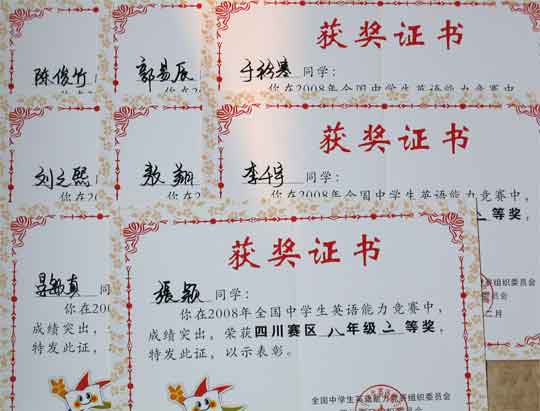 陈俊竹
郭易辰
获奖证书
同学:
你在2008年全国中学生英语能力竞赛中
刘之熙
敖翔
获奖证书
李千宇 同学:
你在2008年全国中学生英语能力竞赛中,
二等奖,
组织委员会
二月
敏真
获奖证书
張颖 同学:
你在2008年全国中学生英语能力竞赛中,
成绩突出,荣获四川赛区八年级二等奖,
特发此证,以示表彰。
成绩突出,
特发此证,
全国中学生英语能力竞赛组织委员会